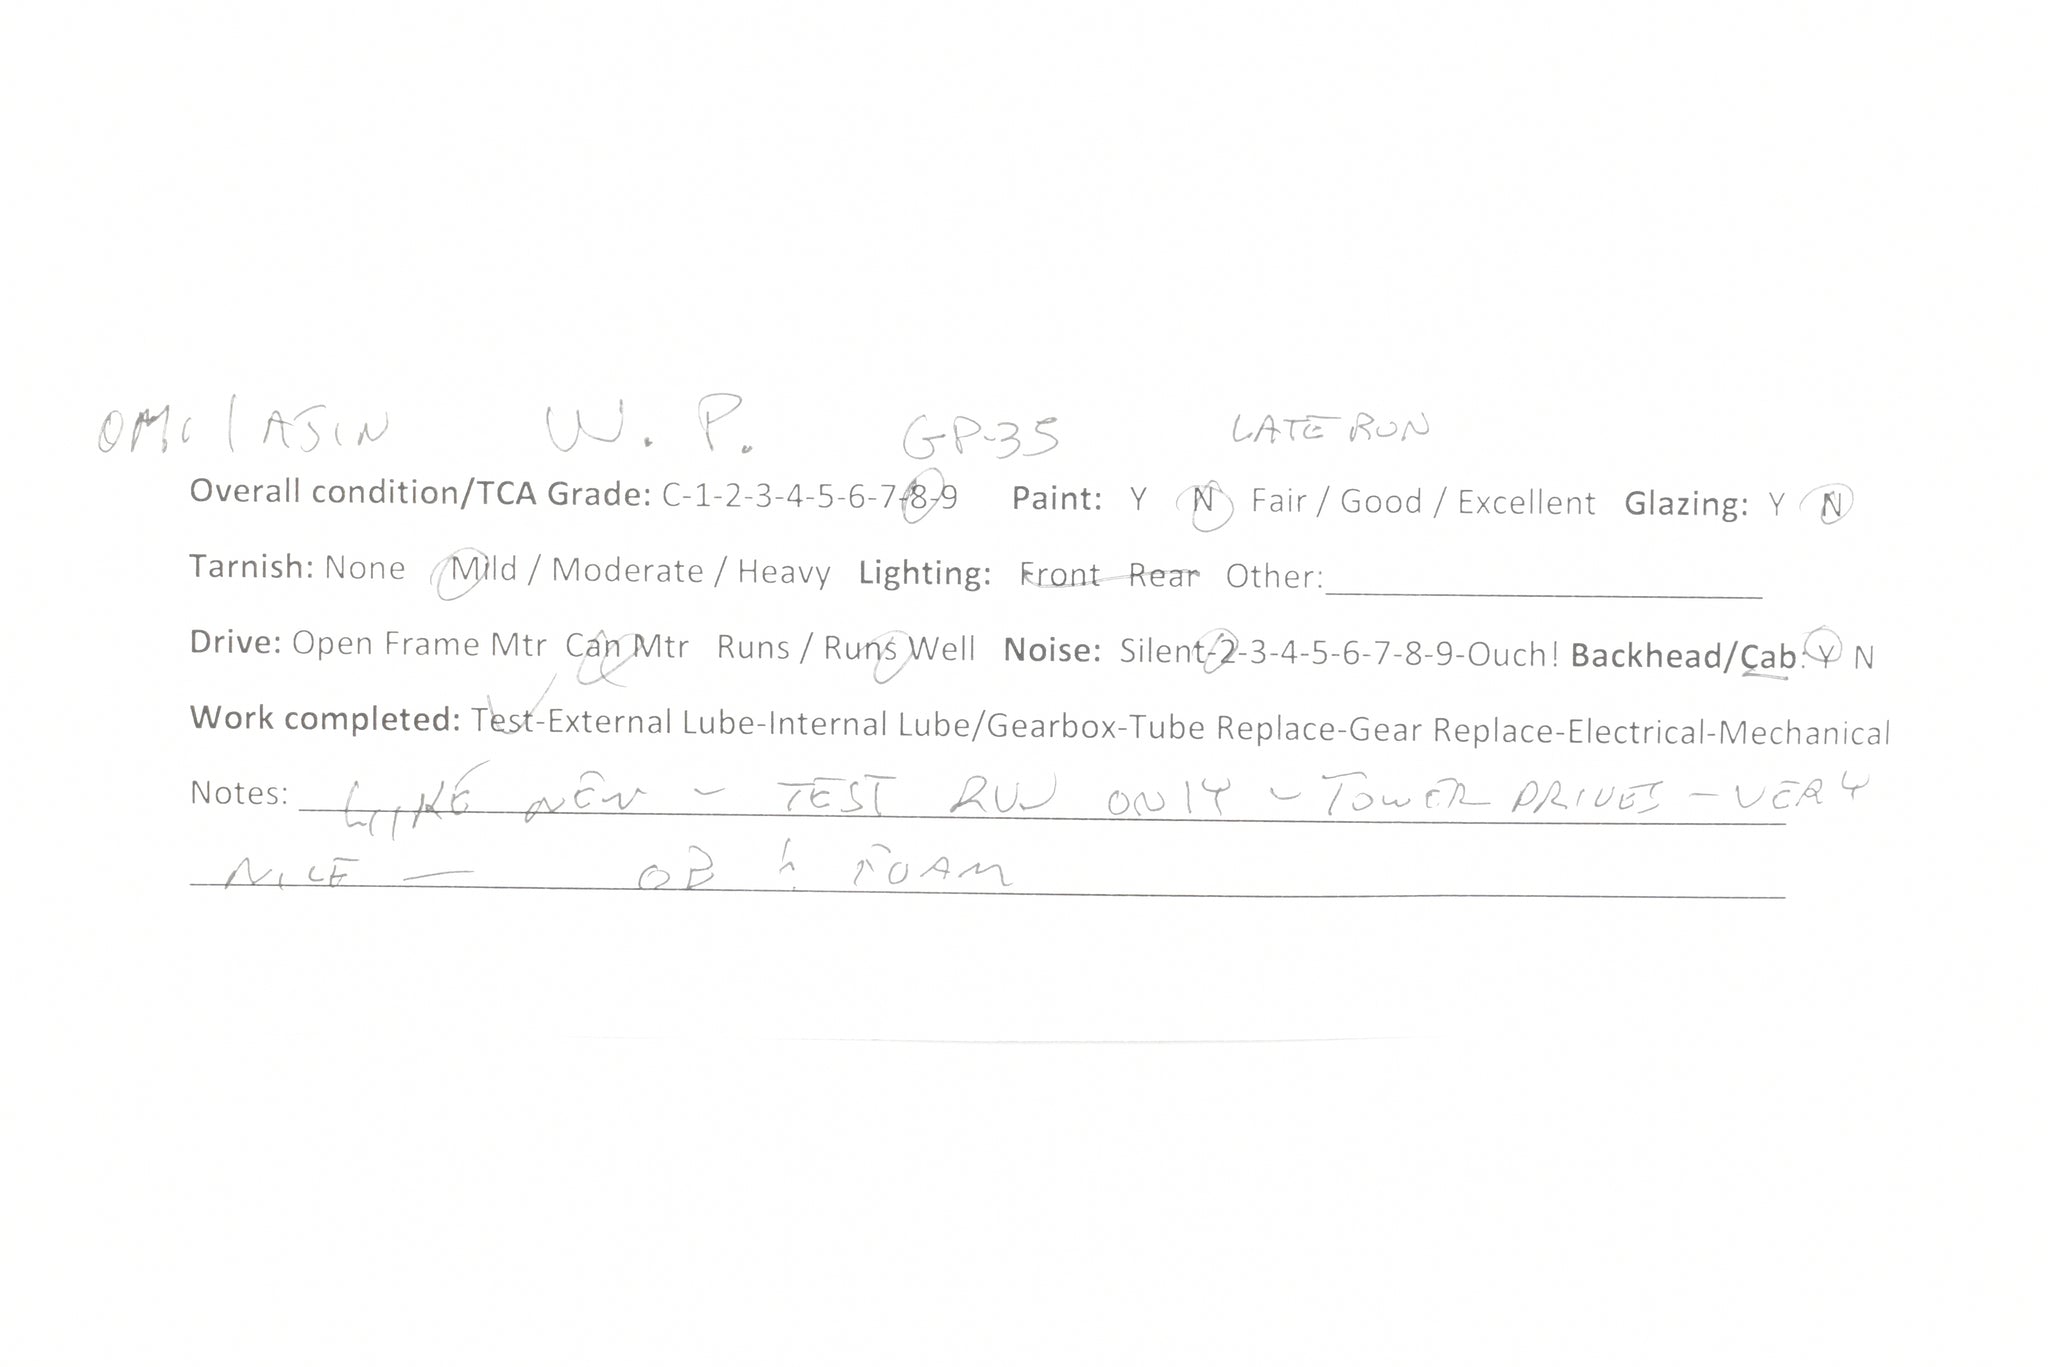 OMC / AJIN W. P. GP-35 LATE RUN
Overall condition/TCA Grade: C-1-2-3-4-5-6-7-8-9 Paint: Y N Fair / Good / Excellent Glazing: Y N
Tarnish: None Mild / Moderate / Heavy Lighting: Front Rear Other:
Drive: Open Frame Mtr Can Mtr Runs / Runs Well Noise: Silent-2-3-4-5-6-7-8-9-Ouch! Backhead/Cab: Y N
Work completed: Test-External Lube-Internal Lube/Gearbox-Tube Replace-Gear Replace-Electrical-Mechanical
Notes: LIKE NEW - TEST RUN ONLY - TOWER DRIVES - VERY
NICE — OB FOAM